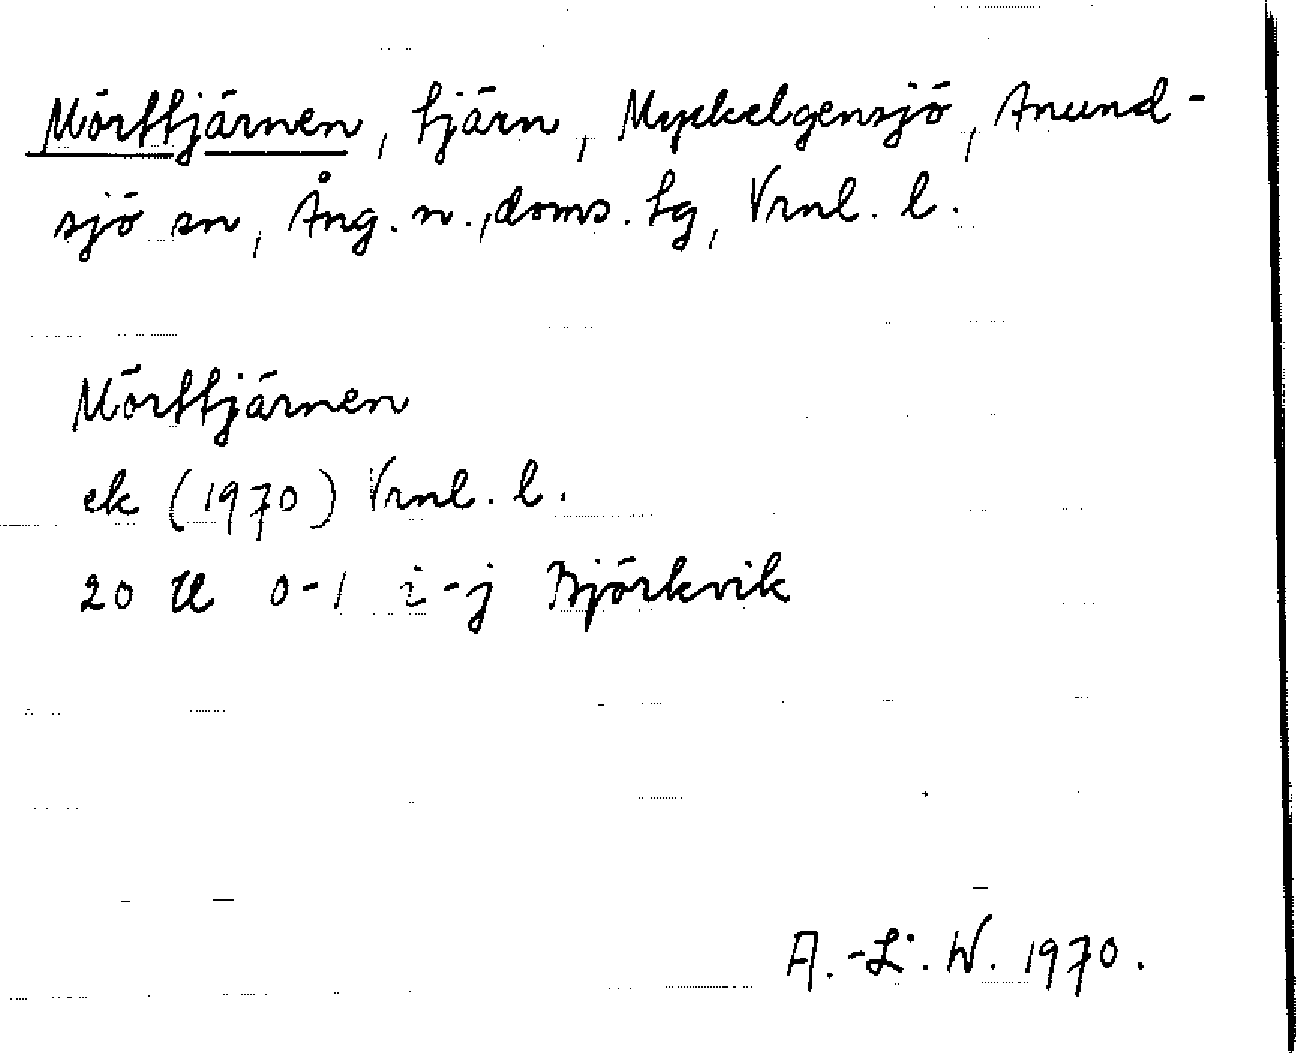 Mörttjärnen, tjärn, Myckelgensjö, Anund-
sjö sn, Ång. n., doms. tg, Vrnl. l.
Mörttjärnen
ek (1970) Vrnl. l.
20 H 0-1 i-j Björkvik
A.-L. W. 1970.